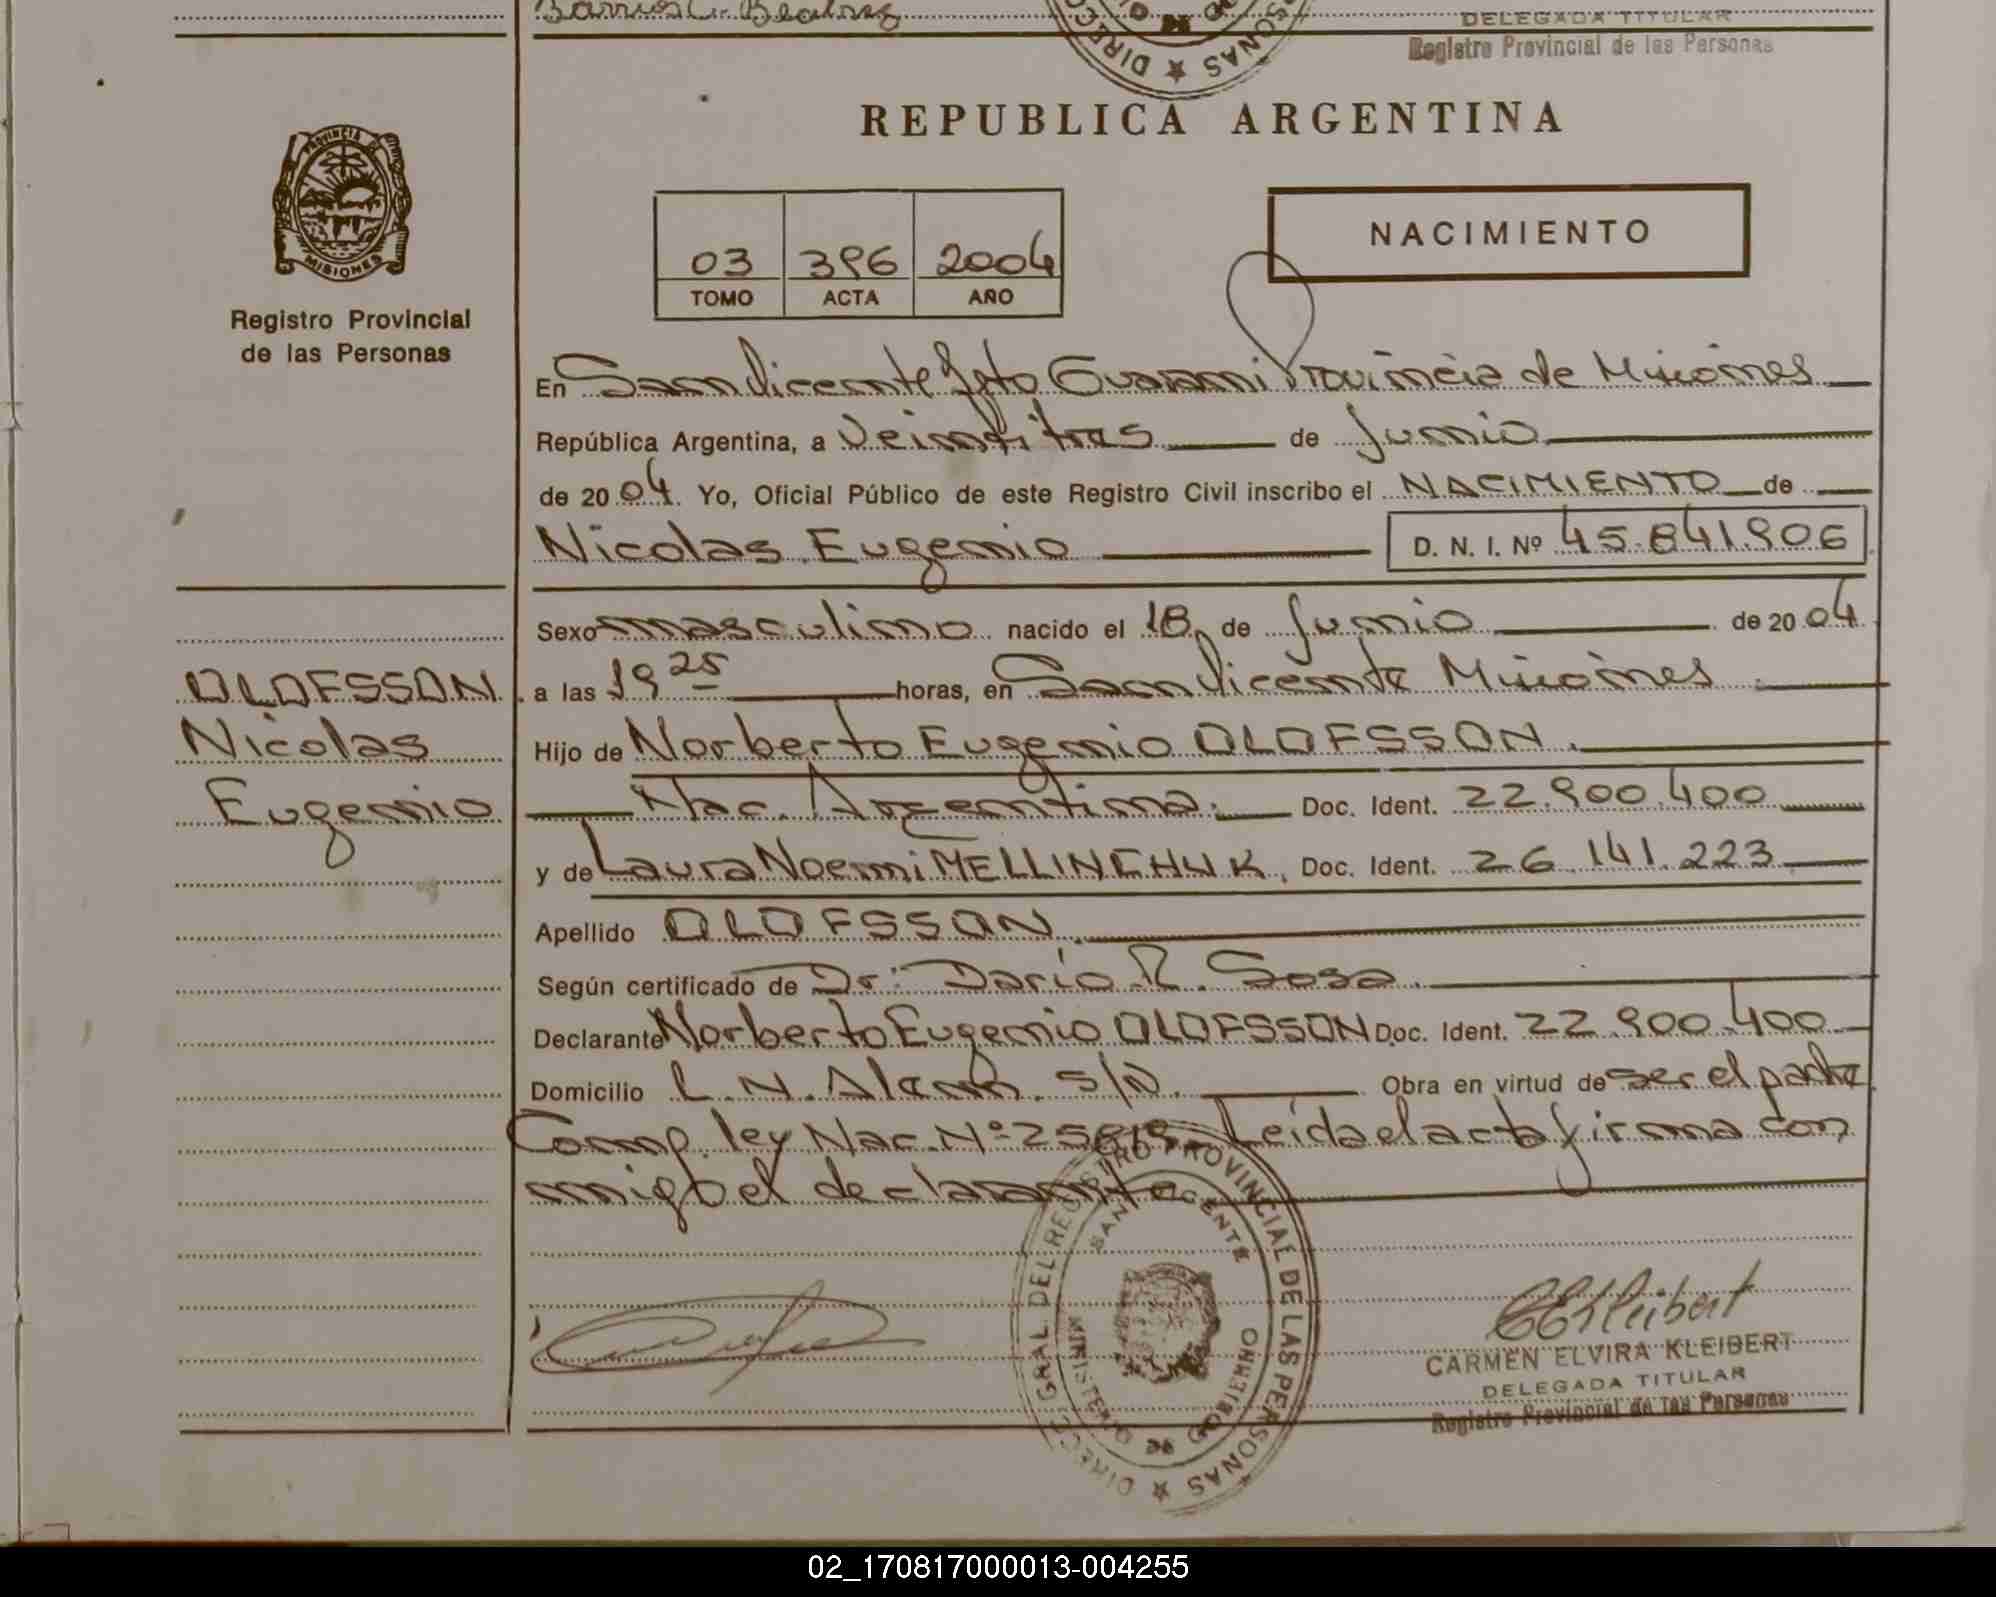 Barrios C. Beatriz
DELEGADA TITULAR
Registro Provincial de las Personas
DIREC SONAS
REPUBLICA ARGENTINA
PROVINCIA DE
MISIONES
Registro Provincial
de las Personas
03 396 2004
TOMO ACTA AÑO
NACIMIENTO
En San Vicente Dpto Guarani Provincia de Misiones
República Argentina, a Veintitres de Junio
de 2004. Yo, Oficial Público de este Registro Civil inscribo el NACIMIENTO de
Nicolas Eugenio D. N. I. Nº 45.841.906
Sexo masculino nacido el 18 de Junio de 2004
OLOFSSON
Nicolas
Eugenio
a las 19 25 horas, en San Vicente Misiones
Hijo de Norberto Eugenio OLOFSSON.
Nac. Argentina. Doc. Ident. 22.900.400
y de Laura Noemi MELLINCHUK, Doc. Ident. 26.141.223
Apellido OLOFSSON.
Según certificado de Dr: Dario R. Sosa.
Declarante Norberto Eugenio OLOFSSON Doc. Ident. 22.900.400
Domicilio L. N. Alem. S/N. Obra en virtud de ser el padre.
Comp. ley Nac. Nº 25819. Leida el acta firma con
migo el declarante
DIREC. GRAL. DEL REGISTRO PROVINCIAL DE LAS PERSONAS
SAN VICENTE
MINISTERIO DE GOBIERNO
CEKleibert
CARMEN ELVIRA KLEIBERT
DELEGADA TITULAR
Registro Provincial de las Personas
02_170817000013-004255